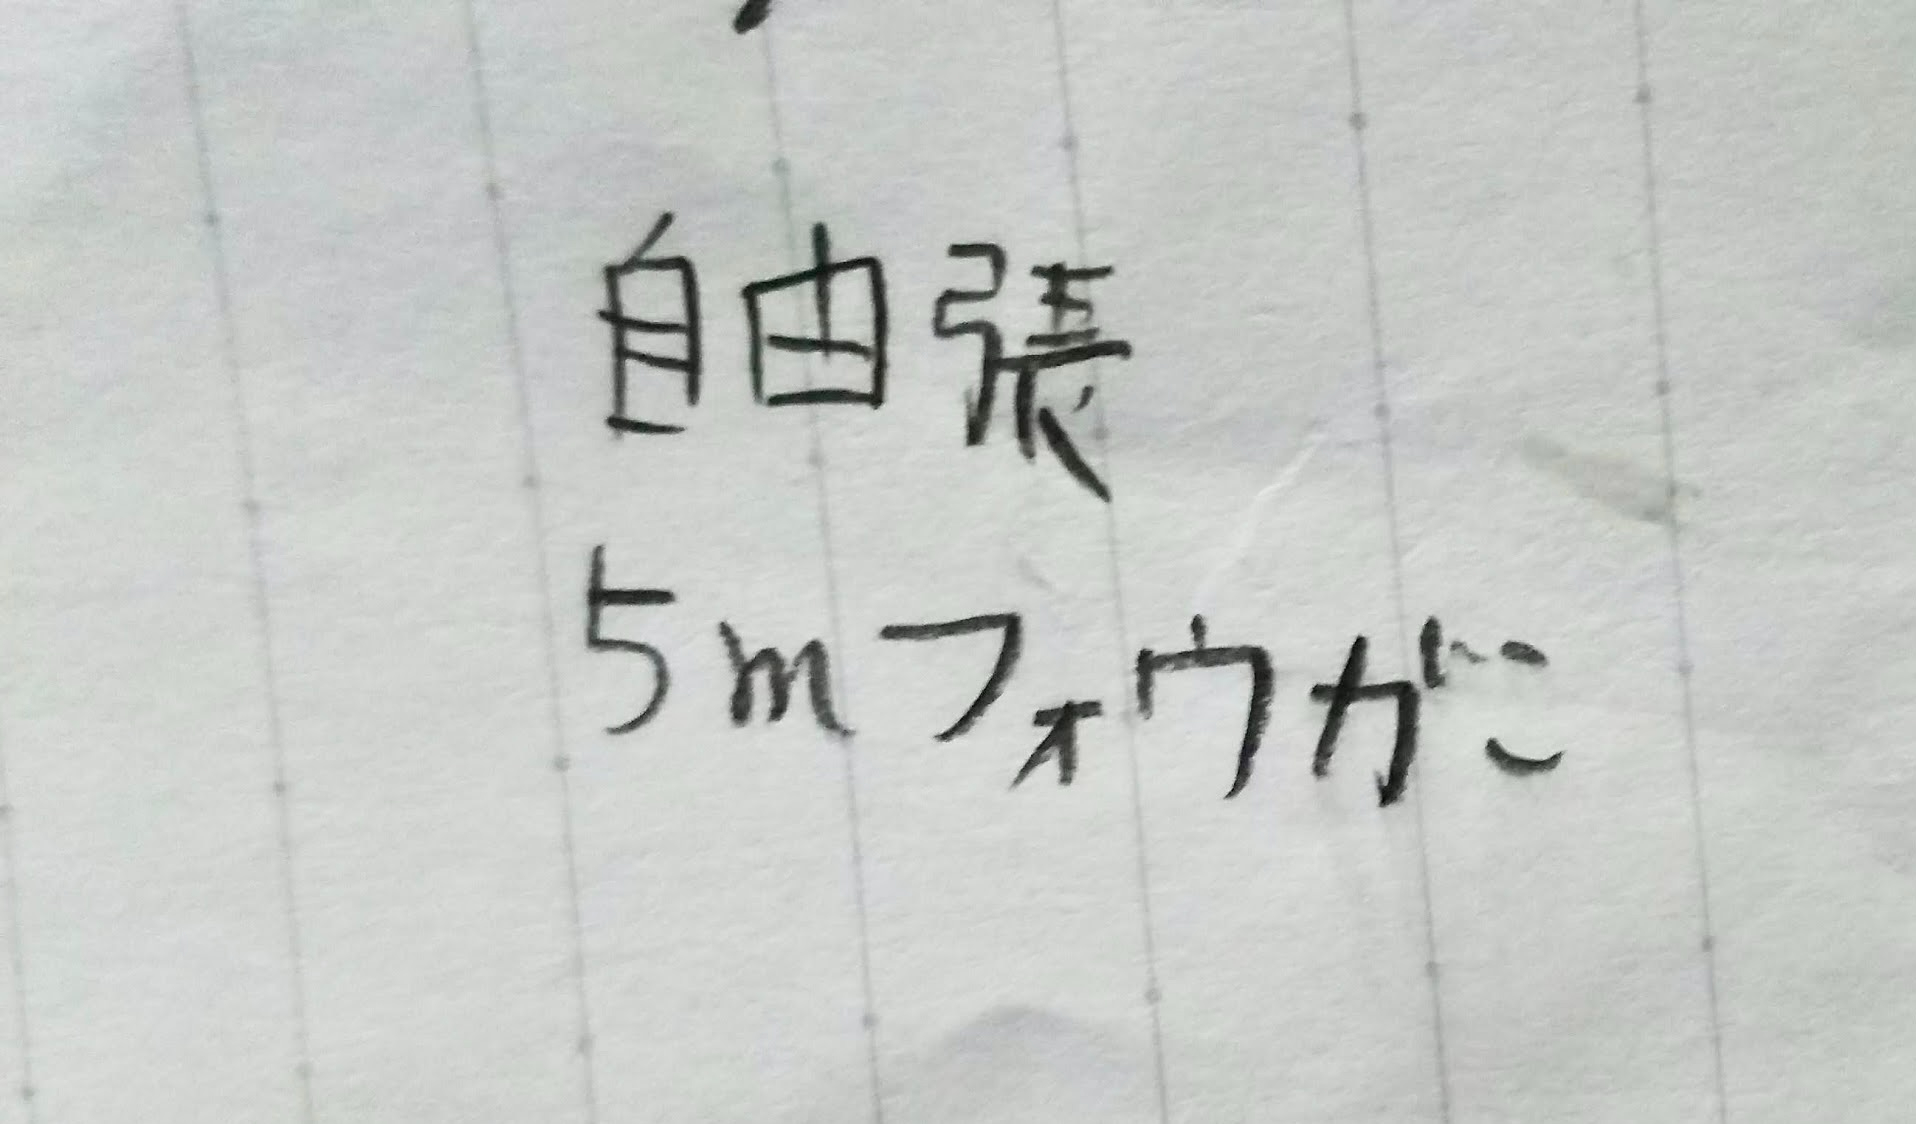 自由張
5mフォウガこ